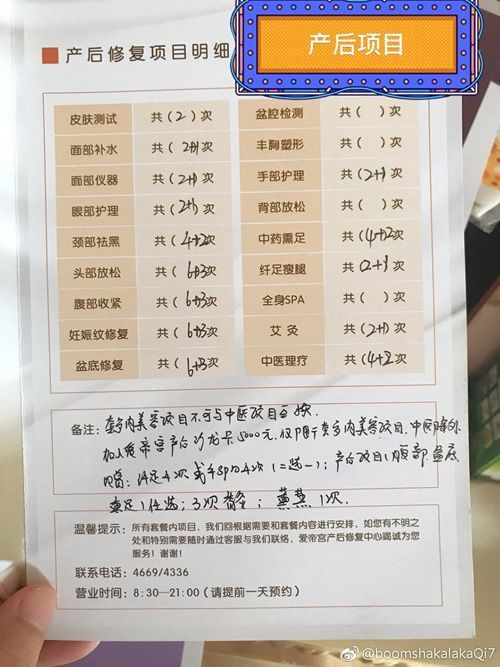 产后修复项目明细
产后项目
皮肤测试 共(2)次 盆腔检测 共( )次
面部补水 共(2+1)次 丰胸塑形 共( )次
面部仪器 共(2+1)次 手部护理 共(2+1)次
眼部护理 共(2+1)次 背部放松 共( )次
颈部祛黑 共(4+2)次 中药熏足 共(4+2)次
头部放松 共(6+3)次 纤足瘦腿 共(2+1)次
腹部收紧 共(6+3)次 全身SPA 共( )次
妊娠纹修复 共(6+3)次 艾灸 共(2+1)次
盆底修复 共(6+3)次 中医理疗 共(4+2)次
备注:套餐内美容项目不可与中医项目互换.
加入爱帝宫产后沙龙卡5000元.仅限于套餐内美容项目.中医除外
4次 手spa4次(二选一);产后项目:腹部盆底
任选;3次 ;熏蒸1次.
温馨提示:所有套餐内项目,我们回根据需要和套餐内容进行安排,如您有不明之
处和特别需要随时通过客服与我们联络,爱帝宫产后修复中心竭诚为您
服务!谢谢!
联系电话:4669/4336
营业时间:8:30—21:00(请提前一天预约)
@boomshakalakaQi7